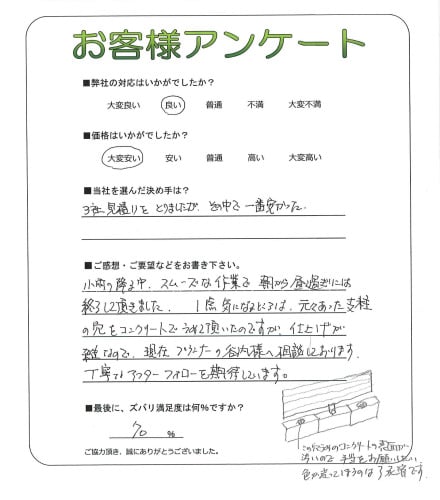 お客様アンケート
■弊社の対応はいかがでしたか?
大変良い 良い 普通 不満 大変不満
■価格はいかがでしたか?
大変安い 安い 普通 高い 大変高い
■当社を選んだ決め手は?
3社見積りをとりましたが、その中で一番安かった。
■ご感想・ご要望などをお書き下さい。
小雨の降る中、スムーズな作業で朝から昼過ぎには
終了して頂きました。1点気になるところは、元々あった支柱
の穴をコンクリートでうめて頂いたのですが、仕上げが
雑なので、現在プランナーの谷内様へ相談しております。
丁寧なアフターフォローを期待しています。
■最後に、ズバリ満足度は何%ですか?
70 %
ご協力頂き、誠にありがとうございました。
のコンクリートの表面が
渋いので手直しをお願いしたい。
色が違ってしまうのは了承済です。